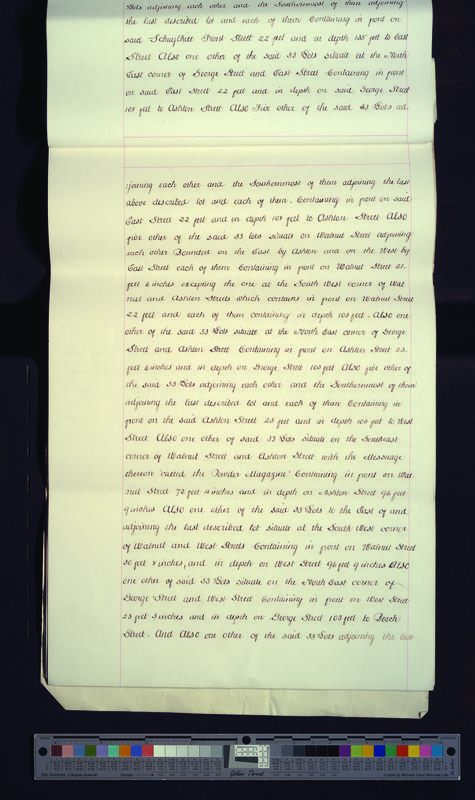 Lots adjoining each other and the Southernmost of them adjoining
the last described lot and each of them Containing in front on
said Schuylkill Front Street 22 feet and in depth 135 feet to East
Street Also one other of the said 33 Lots situate at the North
East corner of George Street and East Street Containing in front
on said East Street 22 feet and in depth on said George Street
103 feet to Ashton Street Also Five other of the said 33 Lots ad-
-joining each other and the Southernmost of them adjoining the last
above described lot and each of them. Containing in front on said
East Street 22 feet and in depth 103 feet to Ashton Street Also
five other of the said 33 lots situate on Walnut Street adjoining
each other Bounded on the East by Ashton and on the West by
East Street each of them Containing in front on Walnut Street 21
feet 6 inches excepting the one at the South West corner of Wal-
nut and Ashton Streets which contains in front on Walnut Street
22 feet and each of them containing in depth 103 feet. Also one
other of the said 33 Lots situate at the North East corner of George
Street and Ashton Street Containing in front on Ashton Street 23
feet 6 inches and in depth on George Street 103 feet Also five other of
the said 33 Lots adjoining each other and the Southernmost of them
adjoining the last described lot and each of them Containing in
front on the said Ashton Street 23 feet and in depth 103 feet to West
Street Also one other of said 33 Lots situate on the Southeast
corner of Walnut Street and Ashton Street with the Messuage
thereon called the Powder Magazine Containing in front on Wal-
nut Street 72 feet 4 inches and in depth on Ashton Street 96 feet
9 inches Also one other of the said 33 Lots to the East of and
adjoining the last described lot situate at the South West corner
of Walnut and West Streets Containing in front on Walnut Street
30 feet 8 inches, and in depth on West Street 96 feet 9 inches Also
one other of said 33 Lots situate on the North East corner of
George Street and West Street Containing in front on West Street
23 feet 3 inches and in depth on George Street 103 feet to Beach
Street. And Also one other of the said 33 Lots adjoining the last